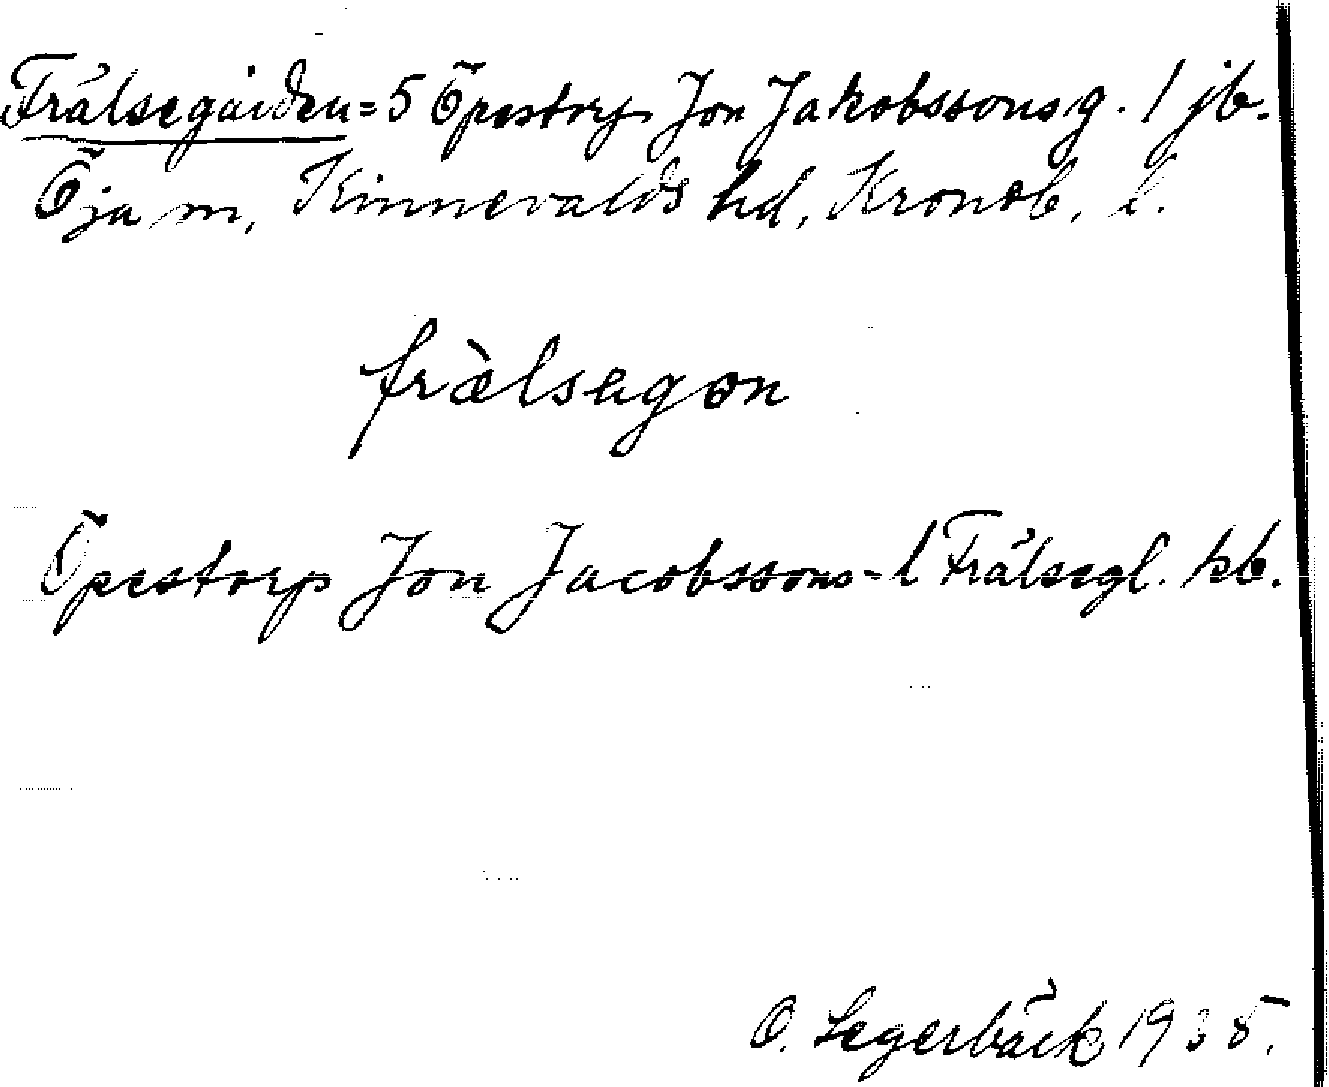 Frälsegården = 5 Öpestorp Jon Jakobssonsg. 1 jb.
Öja sn, Kinnevalds hd, Kronob. l.
frälsegon
Öpestorp Jon Jacobssons - l Frälsegl. kb.
O. Segerbäck 1935.